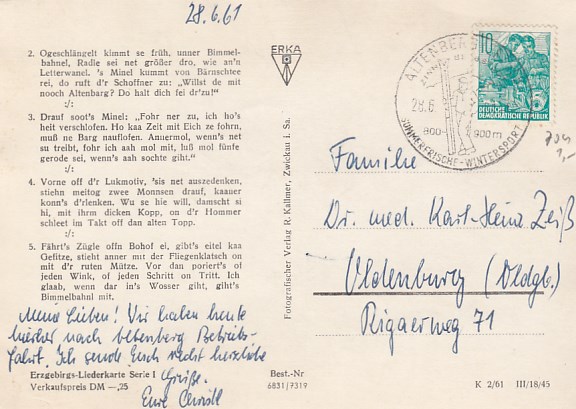 28.6.61
2. Ogeschlängelt kimmt se früh, unner Bimmel-
bahnel, Radle sei net größer dro, wie an'n
Letterwanel. 's Minel kummt von Bärnschtee
rei, do ruft d'r Schoffner zu: „Willst de mit
nooch Altenbarg? Do halt dich fei dr'zu!"
:/:
3. Drauf soot's Minel: „Fohr ner zu, ich ho's
heit verschlofen. Ho kaa Zeit mit Eich ze fohrn,
muß ne Barg nauflofen. Amermol, wenn's net
su treibt, fohr ich aah mol mit, luß mol fünfe
gerode sei, wenn's aah sochte giht."
:/:
4. Vorne off d'r Lukmotiv, 'sis net auszedenken,
stiehn meitog zwee Monnsen drauf, kaauer
konn's d'rlenken. Wu se hie will, damscht si
hi, mit ihrm dicken Kopp, on d'r Hommer
schleet im Takt off dan alten Topp.
:/:
5. Fährt's Zügle offn Bohof ei, gibt's eitel kaa
Gefitze, stieht anner mit der Fliegenklatsch on
mit d'r ruten Mütze. Vor dan poriert's of
jeden Wink, of jeden Schritt on Tritt. Ich
glaab, wenn dar in's Wosser giht, giht's
Bimmelbahnl mit.
Meine Lieben! Wir haben heute
hierher nach Altenberg Betriebs-
fahrt. Ich sende Euch recht herzliche
Grüße.
Eure
Erzgebirgs-Liederkarte Serie I
Verkaufspreis DM —,25
Best.-Nr
6831/7319
ERKA
Fotografischer Verlag R. Kallmer, Zwickau i. Sa.
ALTENBERG
28.6
800- 900m
SOMMERFRISCHE-WINTERSPORT
10
5
DEUTSCHE
DEMOKRATISCHE REPUBLIK
1,-
Familie
Dr. med. Karl-Heinz Zeiß
Oldenburg (Oldgb.)
Rigaerweg 71
K 2/61 III/18/45